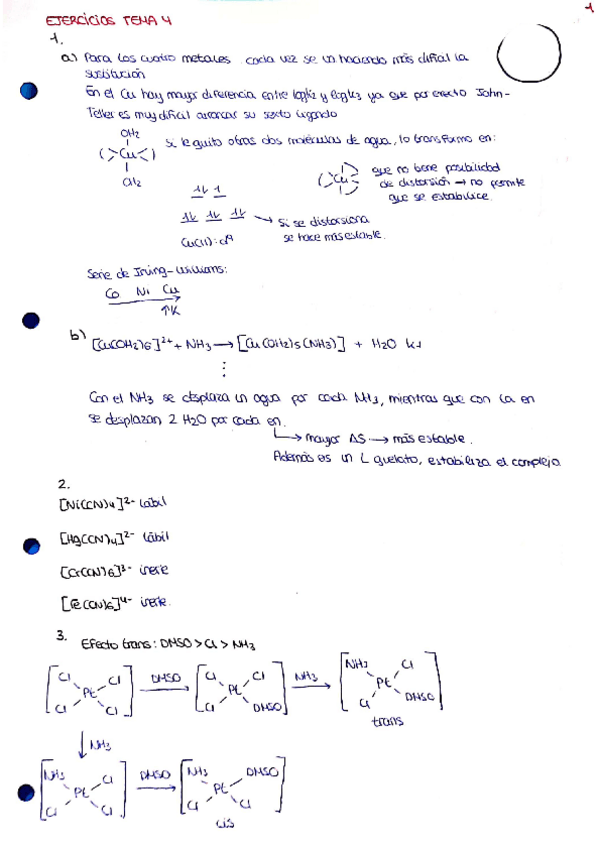 EJERCICIOS TEMA 4
1
1.
a) Para los cuatro metales cada vez se va haciendo más difícil la
sustitución
En el Cu hay mayor diferencia entre logk2 y logk3 ya que por efecto John-
Teller es muy difícil arrancar su sexto ligando
OH2
Cu
OH2
Si le quito otras dos moléculas de agua, lo transformo en:
Cu
que no tiene posibilidad
de distorsión → no permite
que se estabilice.
Si se distorsiona
se hace más estable.
Cu(II): d9
Serie de Irving-Williams:
Co Ni Cu
↑K
b) [Cu(OH2)6]2+ + NH3 → [Cu(OH2)5(NH3)] + H2O k1
⋮
Con el NH3 se desplaza un agua por cada NH3, mientras que con la en
se desplazan 2 H2O por cada en.
→ mayor ΔS → más estable.
Además es un L quelato, estabiliza el complejo
2.
[Ni(CN)4]2- lábil
[Hg(CN)4]2- lábil
[Cr(CN)6]3- inerte
[Fe(CN)6]4- inerte.
3.
Efecto trans: DMSO > Cl > NH3
Cl Cl Pt Cl Cl
DMSO
Cl Cl Pt Cl DMSO
NH3
NH3 Cl Pt Cl DMSO
trans
NH3
NH3 Cl Pt Cl Cl
DMSO
NH3 DMSO Pt Cl Cl
cis